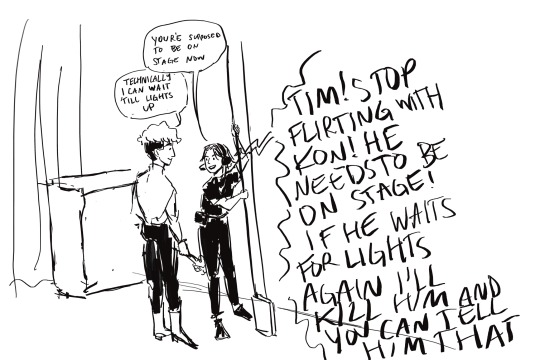 YOUR'E SUPPOSED
TO BE ON
STAGE NOW
TECHNICALLY
I CAN WAIT
'TILL LIGHTS
UP
TIM! STOP
FLIRTING WITH
KON! HE
NEEDS TO BE
ON STAGE!
IF HE WAITS
FOR LIGHTS
AGAIN I'LL
KILL HIM AND
YOU CAN TELL
HIM THAT